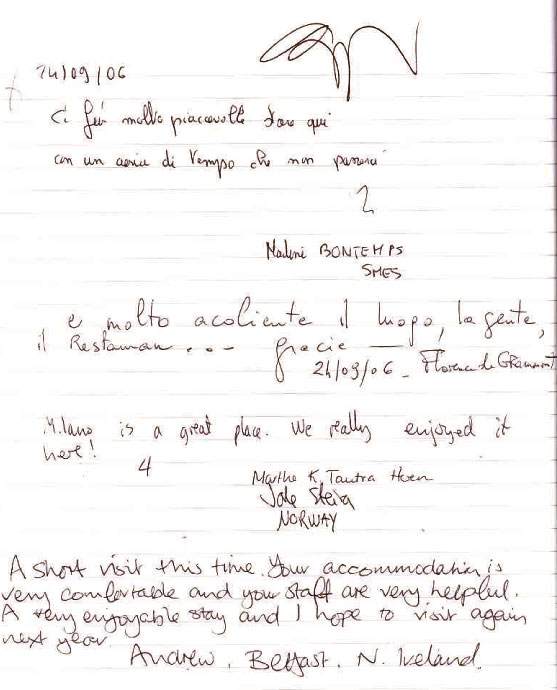 24/09/06
Ci fu molto piacevolte stare qui
con un aenia di tempo che non passerà
2
Nadine BONTEMPS
SMES
e molto acoliente il luogo, la gente,
il Restauran... gracie
24/09/06 - Florence de GRammont
Milano is a great place. We really enjoyed it
here!
4
Marthe K. Tautra Hoen
NORWAY
A short visit this time. Your accommodation is
very comfortable and your staff are very helpful.
A very enjoyable stay and I hope to visit again
next year.
Andrew, Belfast. N. Ireland.